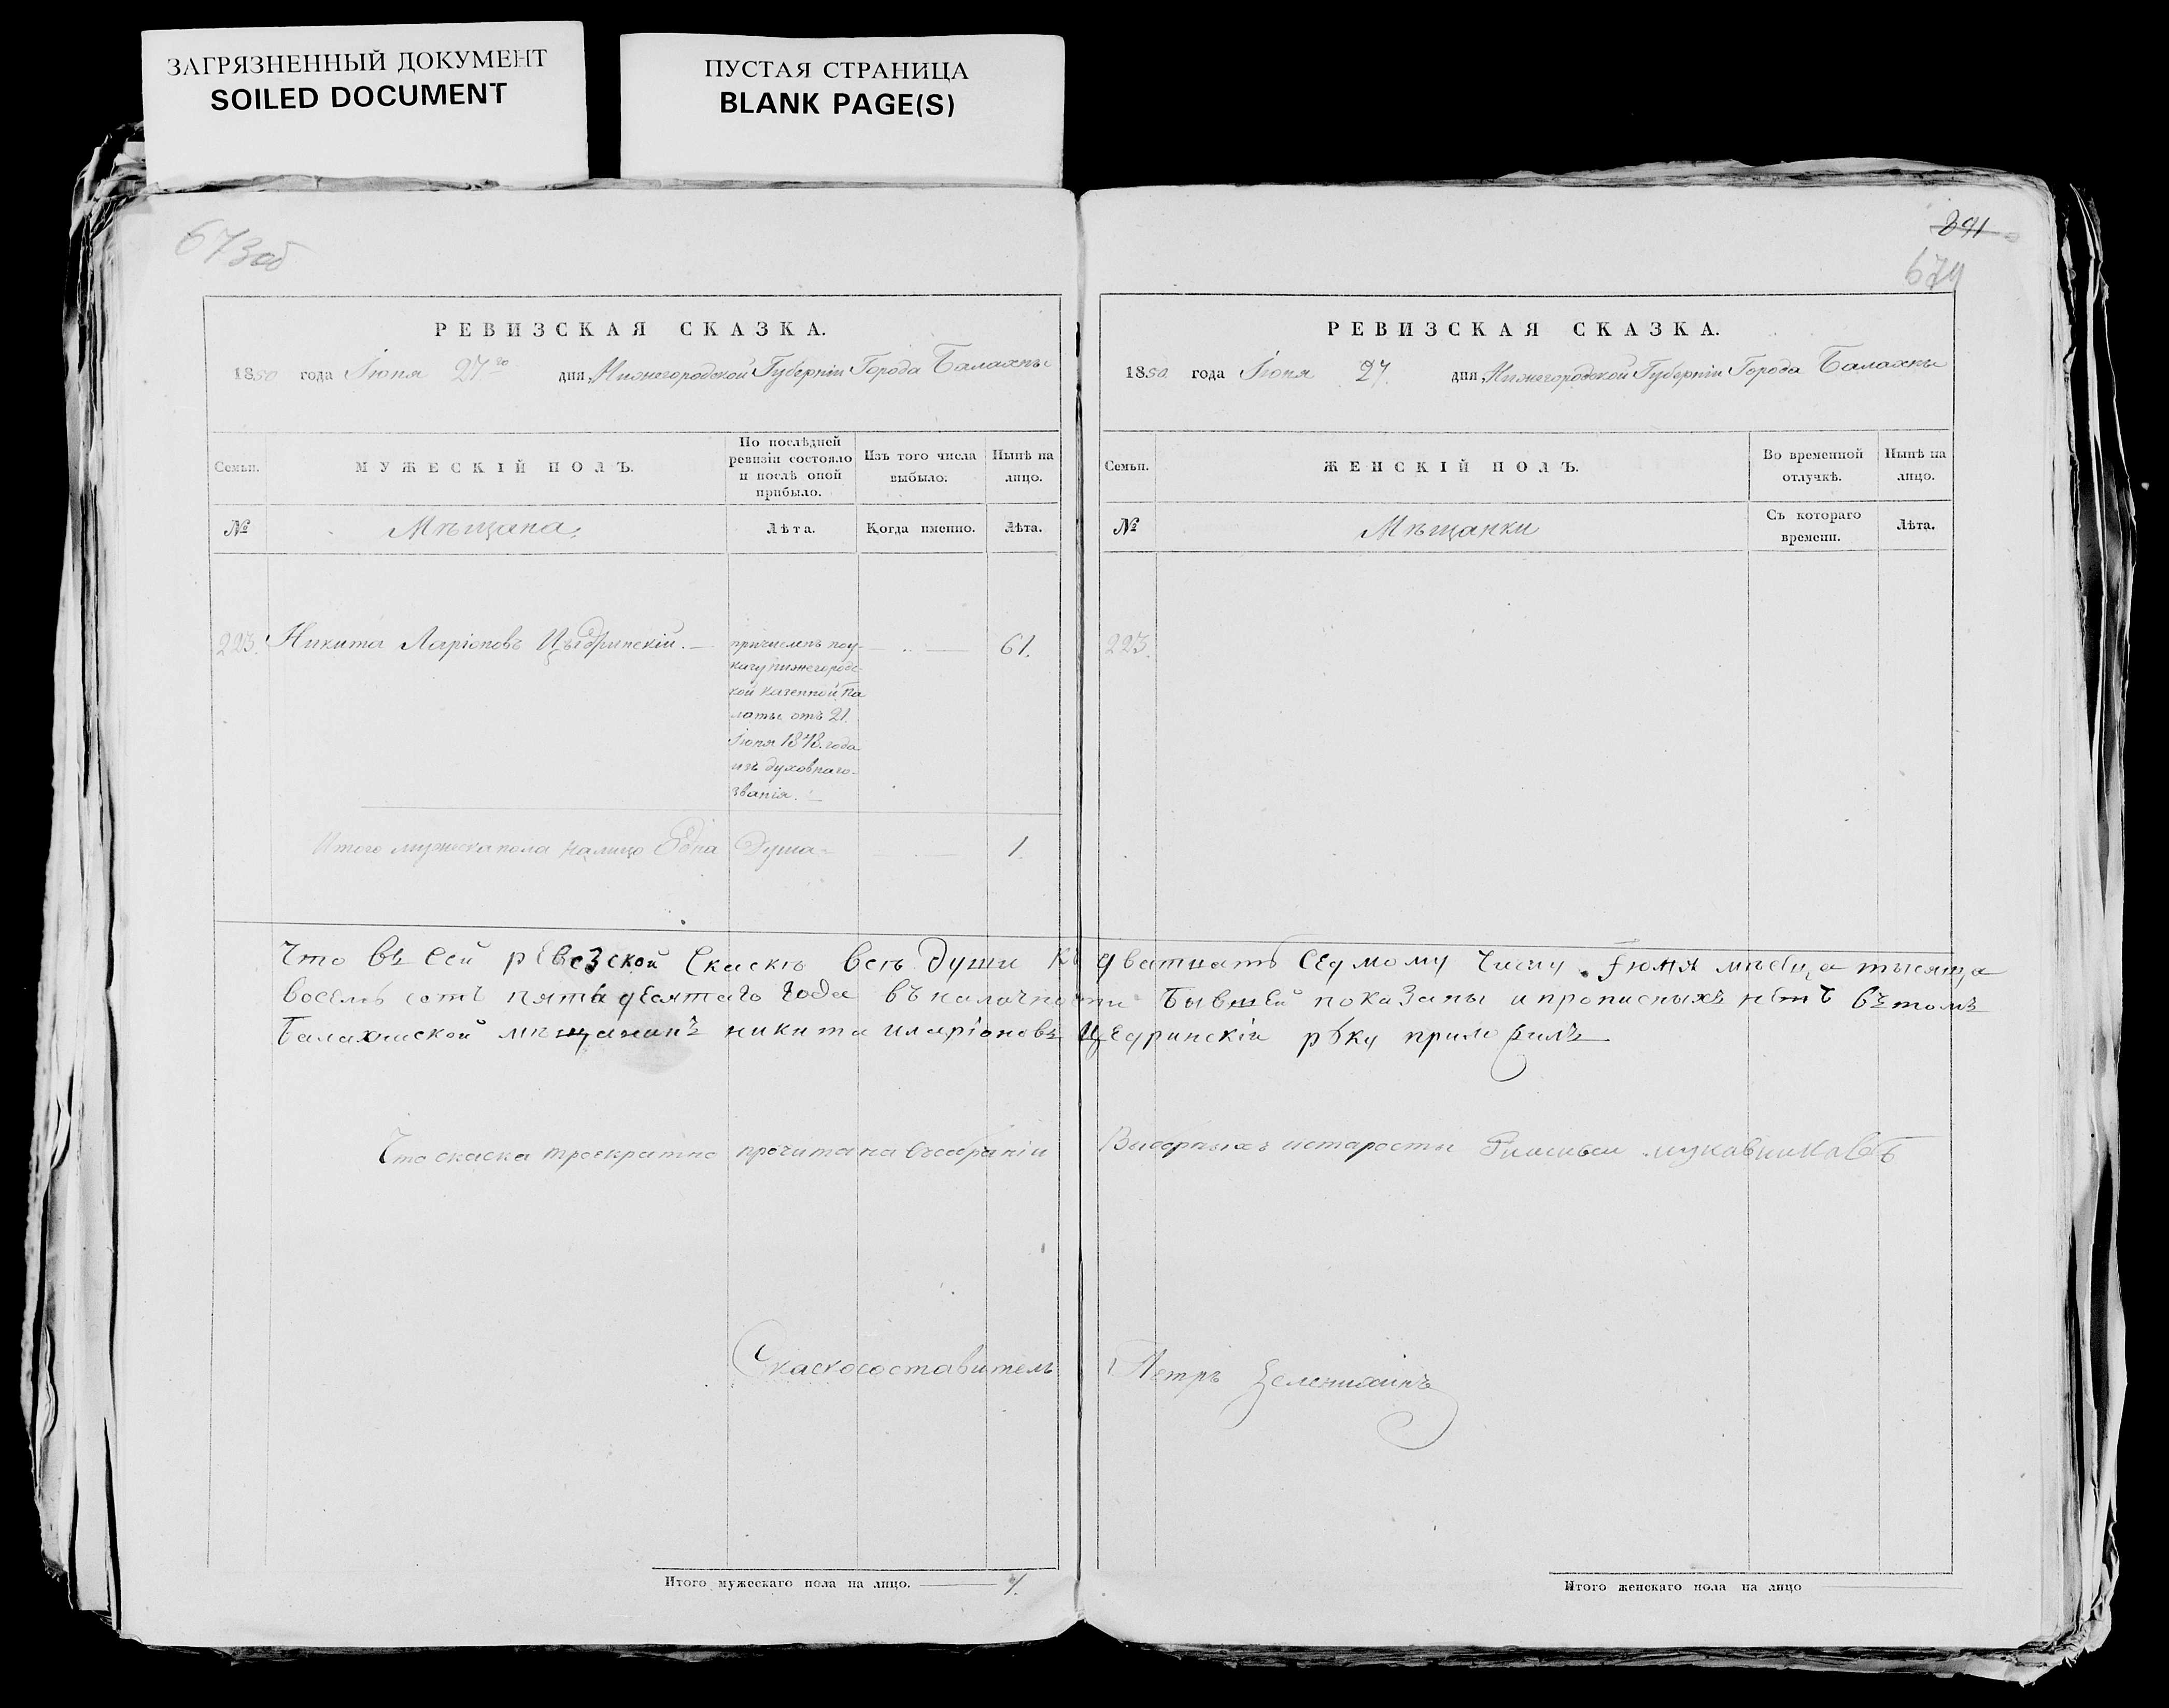 ЗАГРЯЗНЕННЫЙ ДОКУМЕНТ
SOILED DOCUMENT
ПУСТАЯ СТРАНИЦА
BLANK PAGE(S)
673об
РЕВИЗСКАЯ СКАЗКА.
1850 года Іюня 27го дня, Нижегородской Губерніи Города Балахны
Семьи.
МУЖЕСКІЙ ПОЛЪ.
По послѣдней
ревизіи состояло
и послѣ оной
прибыло.
Изъ того числа
выбыло.
Нынѣ на
лицо.
№
Мѣщана.
Лѣта.
Когда именно.
Лѣта.
223. Никита Ларіоновъ Цѣдринскій. 61.
причисленъ поу-
казу Нижегородс-
кой Казенной Па
латы отъ 21.
Іюня 1848. года
изъ духовнаго
званія.
Итого мужеска пола на лицо Една Душа 1.
891
674
РЕВИЗСКАЯ СКАЗКА.
1850 года Іюня 27. дня, Нижегородской Губерніи Города Балахны
Семьи.
ЖЕНСКІЙ ПОЛЪ.
Во временной
отлучкѣ.
Нынѣ на
лицо.
№
Мѣщанки
Съ котораго
времени.
Лѣта.
223.
Что въ сей ревезской Скаскѣ всѣ души къ дватцать седмому числу Іюня мѣсеца тысяща
восемь сотъ пятьдесятаго года въ наличности бывшей показаны и прописныхъ нетъ въ томъ
балахнской мѣщанинъ никита иларіоновъ Цедринскій руку приложилъ
Что скаска троекратно прочитана въ собраніи
Скаскосоставитель Петръ Зеленихинъ
Итого мужескаго пола на лицо. 1.
Итого женскаго пола на лицо